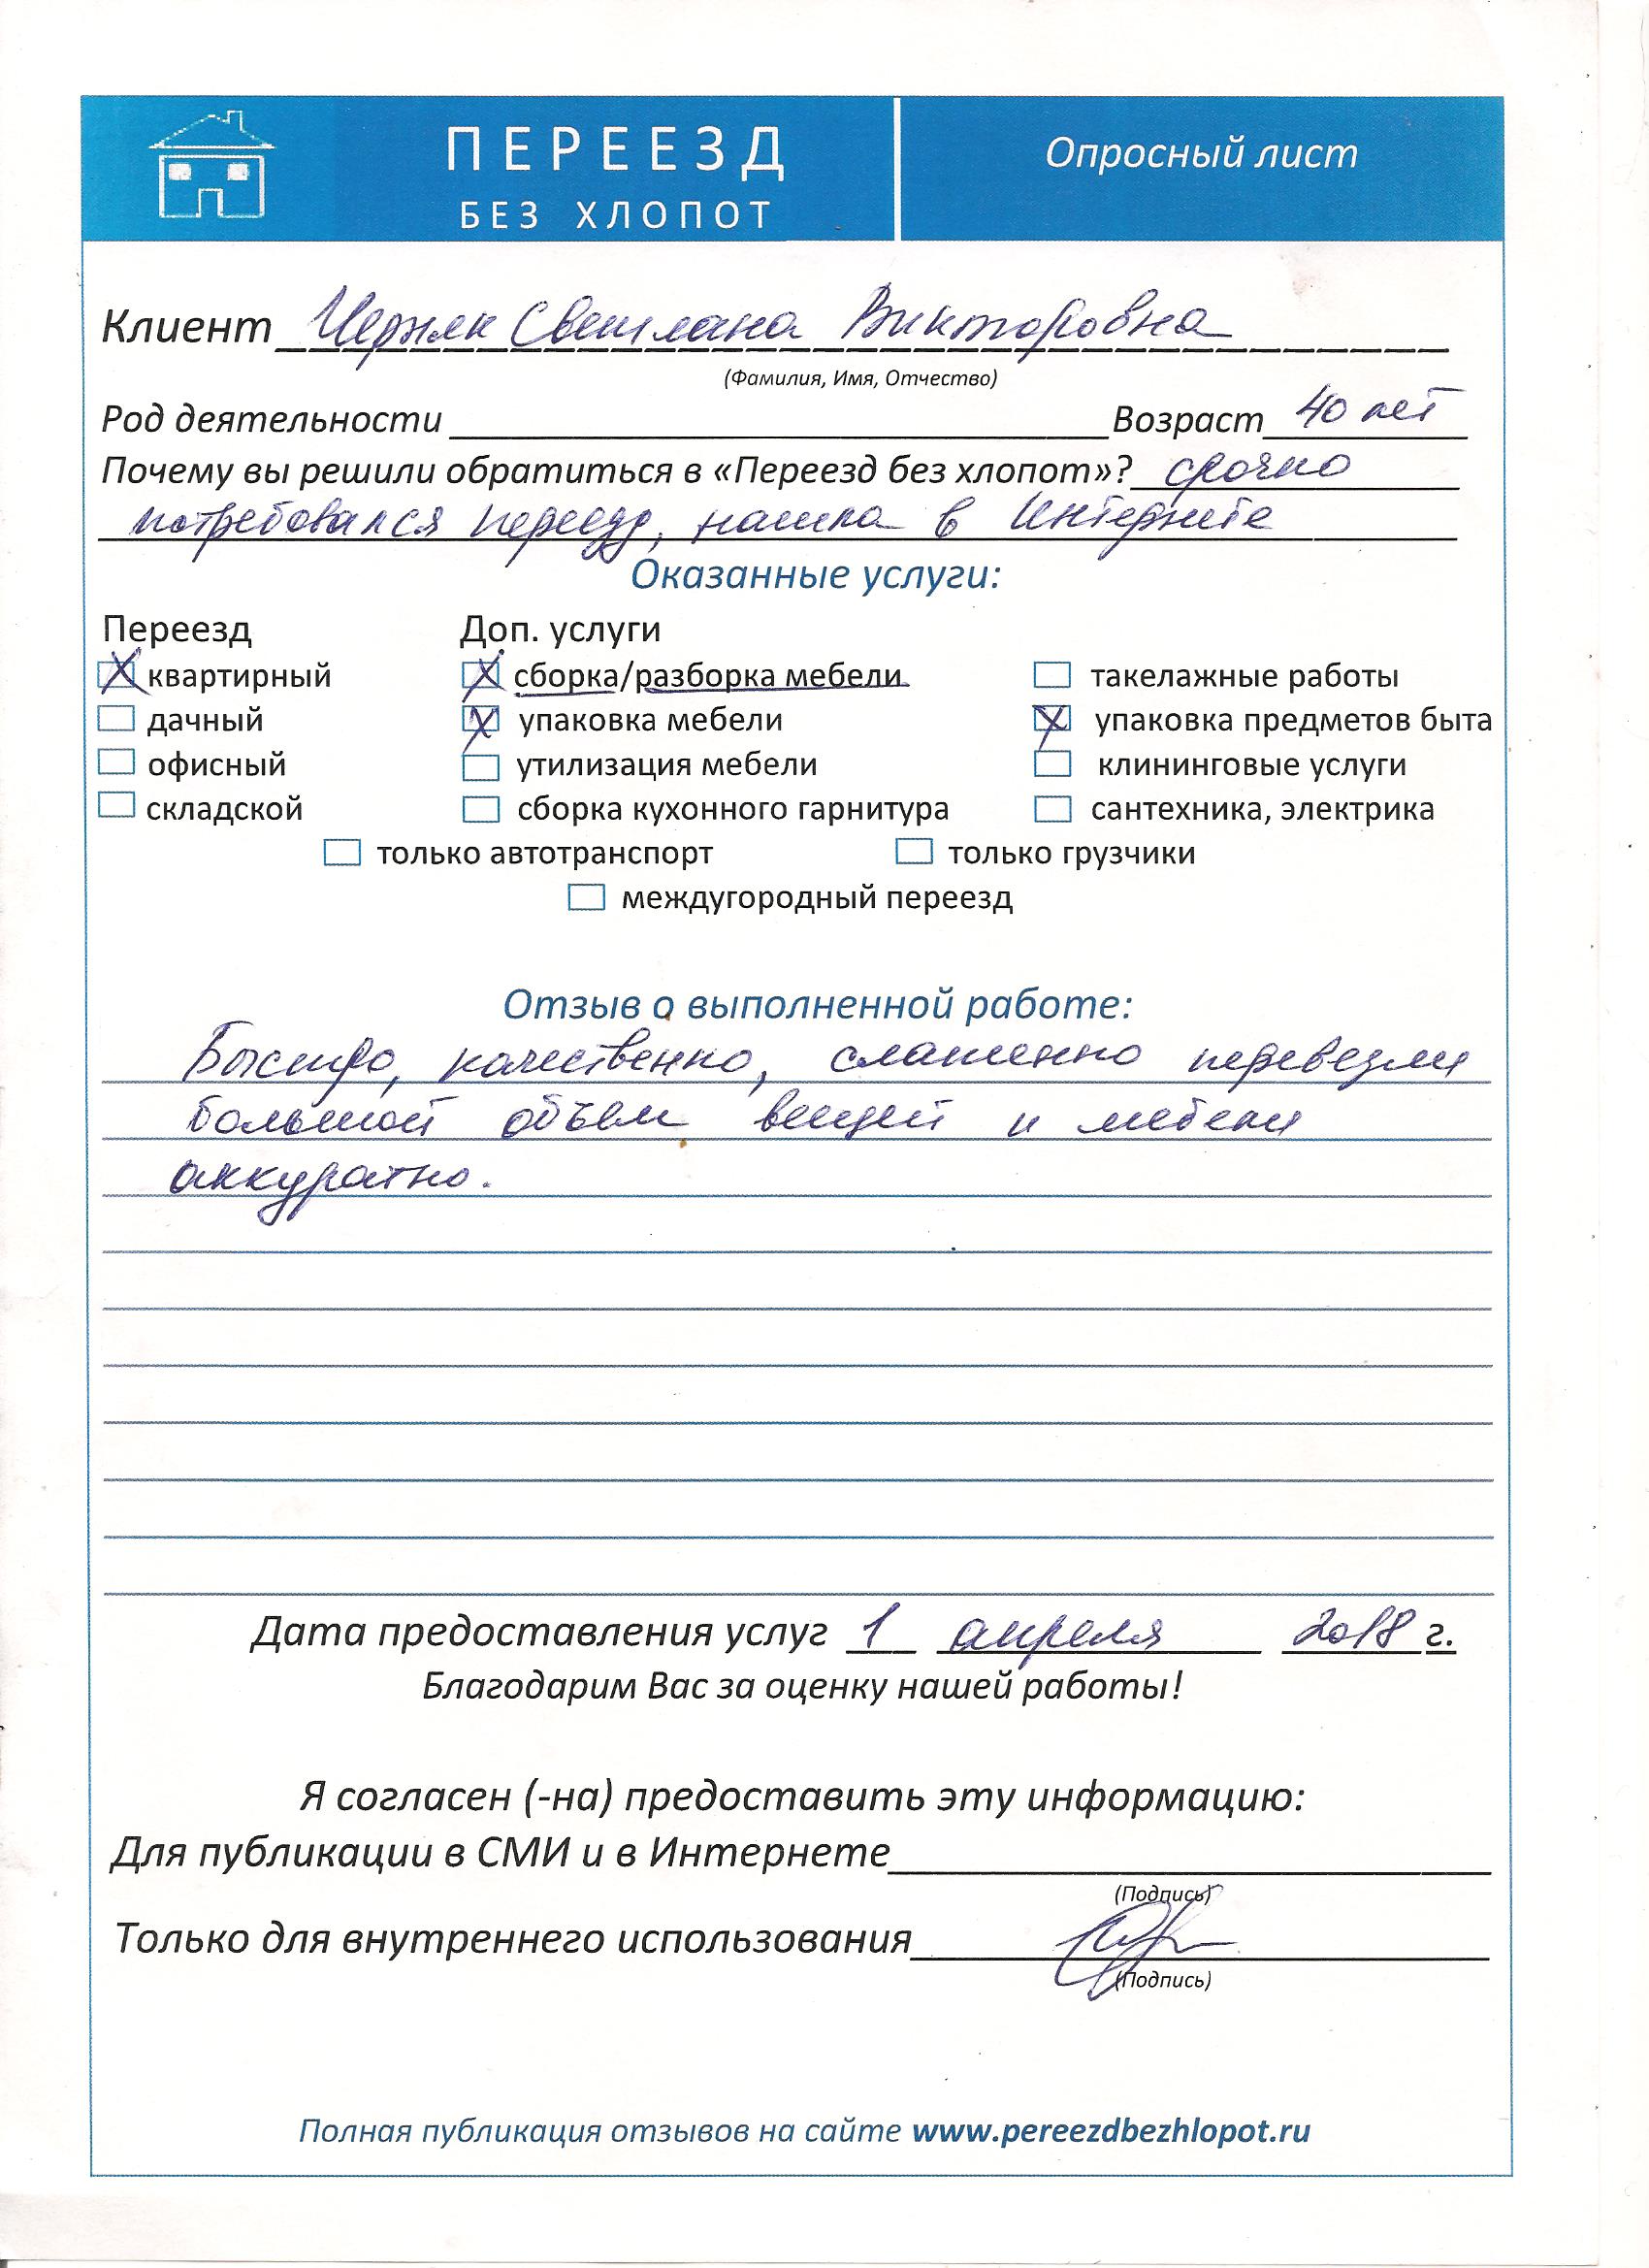 ПЕРЕЕЗД
БЕЗ ХЛОПОТ
Опросный лист
Клиент Черняк Светлана Викторовна
(Фамилия, Имя, Отчество)
Род деятельности Возраст 40 лет
Почему вы решили обратиться в «Переезд без хлопот»? срочно
потребовался переезд, нашла в Интернете
Оказанные услуги:
Переезд Доп. услуги
квартирный сборка/разборка мебели такелажные работы
дачный упаковка мебели упаковка предметов быта
офисный утилизация мебели клининговые услуги
складской сборка кухонного гарнитура сантехника, электрика
только автотранспорт только грузчики
междугородный переезд
Отзыв о выполненной работе:
Быстро, качественно, слаженно перевезли
большой объем вещей и мебели
аккуратно.
Дата предоставления услуг 1 апреля 2018 г.
Благодарим Вас за оценку нашей работы!
Я согласен (-на) предоставить эту информацию:
Для публикации в СМИ и в Интернете
(Подпись)
Только для внутреннего использования
(Подпись)
Полная публикация отзывов на сайте www.pereezdbezhlopot.ru